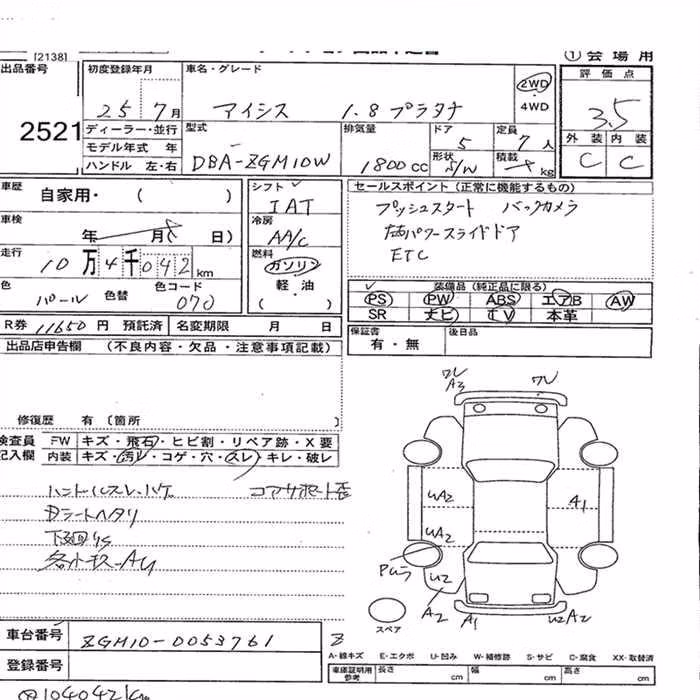 [2138]
① 会場用
出品番号
2521
初度登録年月
25 7月
車名・グレード
アイシス 1.8 プラタナ
2WD
4WD
評価点
3.5
外装 内装
C C
ディーラー・並行
モデル年式 年
ハンドル 左・右
型式
DBA-ZGM10W
排気量
1800 cc
ドア
5
形状
S/W
定員
7 人
積載
kg
車歴
自家用・( )
車検
年 月( 日)
走行
10万4千042 km
色
パール
色替
色コード
070
シフト
IAT
冷房
AA/C
燃料
ガソリン
軽・油
( ・ )
セールスポイント (正常に機能するもの)
プッシュスタート バックカメラ
両パワースライドドア
ETC
装備品 (純正品に限る)
PS PW ABS エアB AW
SR ナビ TV 本革
R券 11650 円 預託済 名変期限 月 日
保証書
有・無
後日品
出品店申告欄 (不良内容・欠品・注意事項記載)
修復歴 有 (箇所
検査員
記入欄
FW キズ・飛石・ヒビ割・リペア跡・X要
内装 キズ・汚レ・コゲ・穴・スレ・キレ・破レ
ハンドルスレ・ハゲ
Dシートヘタリ
下廻りS
ワレ
A3
ワレ
UA2
A1
UA2
U2
A2
A1
U2A2
スペア
車台番号
ZGM10-0053761
登録番号
A-線キズ E-エクボ U-凹み W-補修跡 S-サビ C-腐食 XX-取替済
車庫証明用
参考
長さ cm 幅 cm 高さ cm
104042km